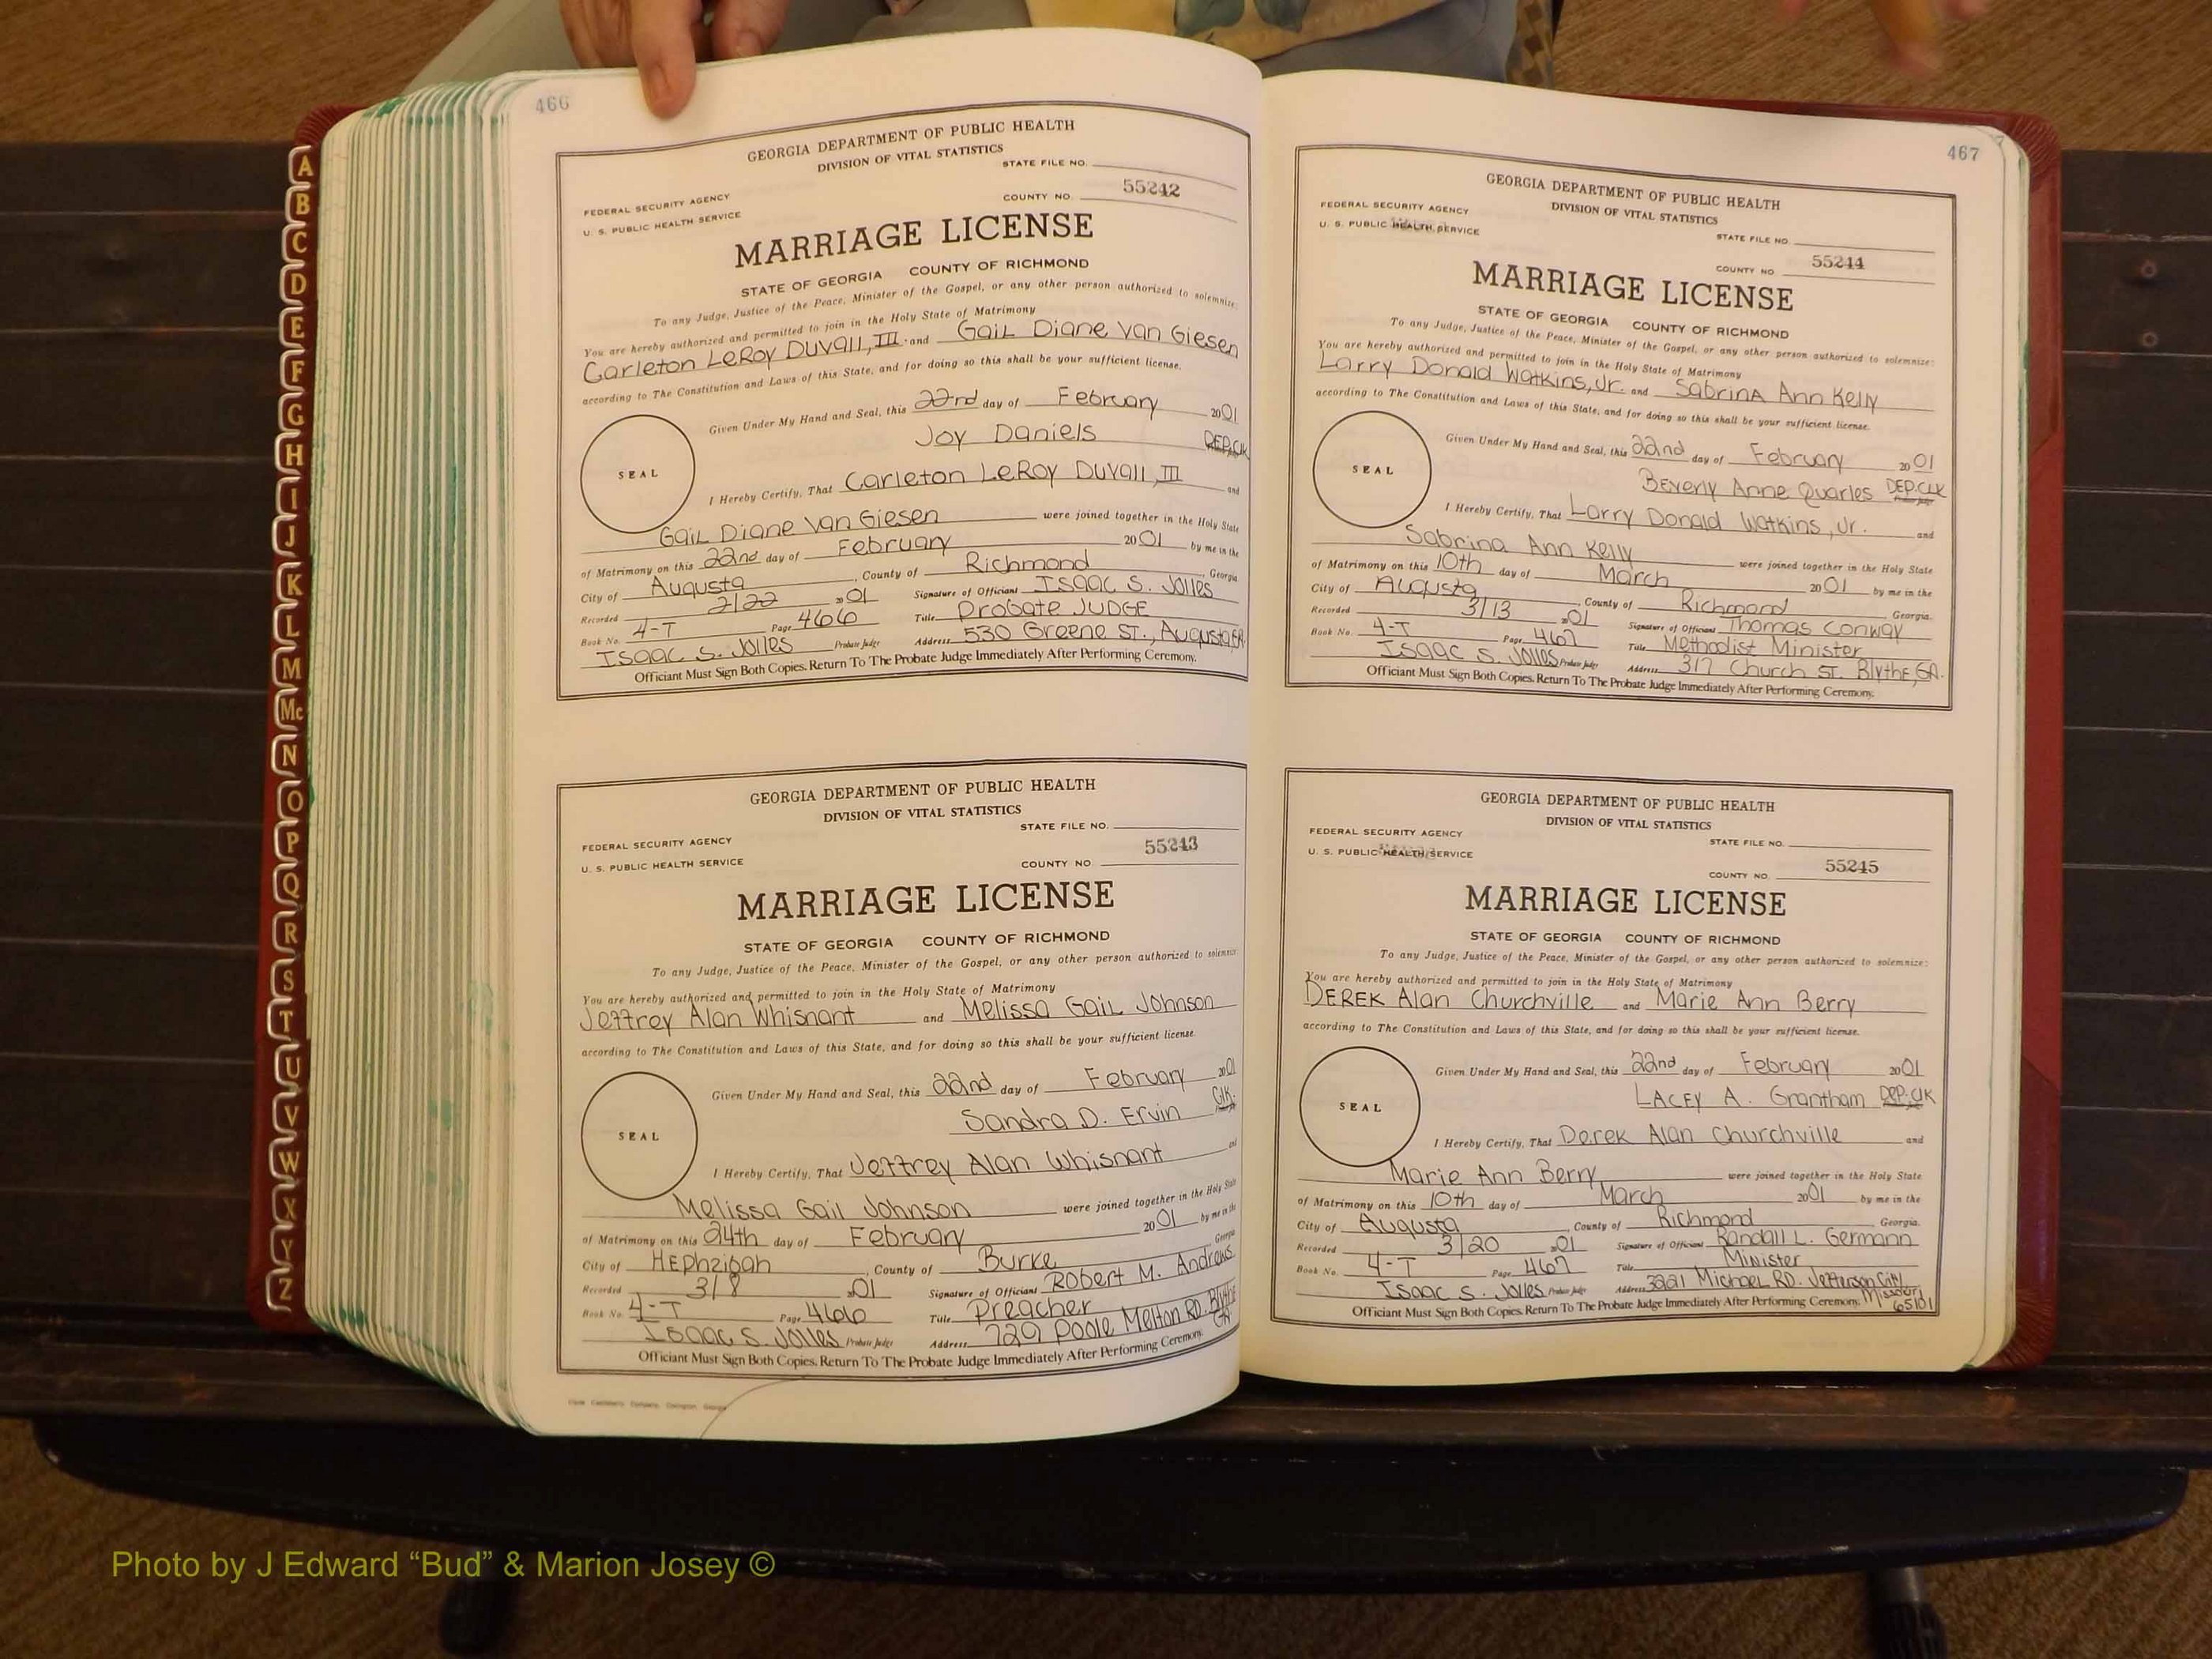 466
GEORGIA DEPARTMENT OF PUBLIC HEALTH
DIVISION OF VITAL STATISTICS
STATE FILE NO.
FEDERAL SECURITY AGENCY
U. S. PUBLIC HEALTH SERVICE
COUNTY NO. 55242
MARRIAGE LICENSE
STATE OF GEORGIA COUNTY OF RICHMOND
To any Judge, Justice of the Peace, Minister of the Gospel, or any other person authorized to solemnize:
You are hereby authorized and permitted to join in the Holy State of Matrimony
Carleton LeRoy Duvall, III and Gail Diane Van Giesen
according to The Constitution and Laws of this State, and for doing so this shall be your sufficient license.
Given Under My Hand and Seal, this 22nd day of February 2001
Joy Daniels DEP. Clk
SEAL
I Hereby Certify, That Carleton LeRoy Duvall, III and
Gail Diane Van Giesen were joined together in the Holy State
of Matrimony on this 22nd day of February 2001 by me in the
City of Augusta, County of Richmond Georgia
Recorded 2/22 2001 Signature of Officiant Isaac S. Jolles
Book No. 4-T Page 466 Title Probate JUDGE
Isaac S. Jolles Probate Judge Address 530 Greene ST., Augusta, GA.
Officiant Must Sign Both Copies. Return To The Probate Judge Immediately After Performing Ceremony.
GEORGIA DEPARTMENT OF PUBLIC HEALTH
DIVISION OF VITAL STATISTICS
STATE FILE NO.
FEDERAL SECURITY AGENCY
U. S. PUBLIC HEALTH SERVICE
COUNTY NO. 55243
MARRIAGE LICENSE
STATE OF GEORGIA COUNTY OF RICHMOND
To any Judge, Justice of the Peace, Minister of the Gospel, or any other person authorized to solemnize:
You are hereby authorized and permitted to join in the Holy State of Matrimony
Jeffrey Alan Whisnant and Melissa Gail Johnson
according to The Constitution and Laws of this State, and for doing so this shall be your sufficient license.
Given Under My Hand and Seal, this 22nd day of February 2001
Sandra D. Ervin Clk.
SEAL
I Hereby Certify, That Jeffrey Alan Whisnant and
Melissa Gail Johnson were joined together in the Holy State
of Matrimony on this 24th day of February 2001 by me in the
City of Hephzibah, County of Burke Georgia
Recorded 3/8 2001 Signature of Officiant Robert M. Andrews
Book No. 4-T Page 466 Title Preacher
Isaac S. Jolles Probate Judge Address 729 Poole Melton RD. Blythe GA.
Officiant Must Sign Both Copies. Return To The Probate Judge Immediately After Performing Ceremony.
467
GEORGIA DEPARTMENT OF PUBLIC HEALTH
DIVISION OF VITAL STATISTICS
FEDERAL SECURITY AGENCY
U. S. PUBLIC HEALTH SERVICE
STATE FILE NO.
COUNTY NO 55244
MARRIAGE LICENSE
STATE OF GEORGIA COUNTY OF RICHMOND
To any Judge, Justice of the Peace, Minister of the Gospel, or any other person authorized to solemnize:
You are hereby authorized and permitted to join in the Holy State of Matrimony
Larry Donald Watkins, Jr. and Sabrina Ann Kelly
according to The Constitution and Laws of this State, and for doing so this shall be your sufficient license.
Given Under My Hand and Seal, this 22nd day of February 2001
Beverly Anne Quarles DEP. CLK
SEAL
I Hereby Certify, That Larry Donald Watkins, Jr. and
Sabrina Ann Kelly were joined together in the Holy State
of Matrimony on this 10th day of March 2001 by me in the
City of Augusta, County of Richmond Georgia.
Recorded 3/13 2001 Signature of Officiant Thomas Conway
Book No. 4-T Page 467 Title Methodist Minister
Isaac S. Jolles Probate Judge Address 317 Church ST. Blythe, GA.
Officiant Must Sign Both Copies. Return To The Probate Judge Immediately After Performing Ceremony.
GEORGIA DEPARTMENT OF PUBLIC HEALTH
DIVISION OF VITAL STATISTICS
FEDERAL SECURITY AGENCY
U. S. PUBLIC HEALTH SERVICE
STATE FILE NO.
COUNTY NO. 55245
MARRIAGE LICENSE
STATE OF GEORGIA COUNTY OF RICHMOND
To any Judge, Justice of the Peace, Minister of the Gospel, or any other person authorized to solemnize:
You are hereby authorized and permitted to join in the Holy State of Matrimony
DEREK Alan Churchville and Marie Ann Berry
according to The Constitution and Laws of this State, and for doing so this shall be your sufficient license.
Given Under My Hand and Seal, this 22nd day of February 2001
LACEY A. Grantham DEP. Clk
SEAL
I Hereby Certify, That Derek Alan Churchville and
Marie Ann Berry were joined together in the Holy State
of Matrimony on this 10th day of March 2001 by me in the
City of Augusta, County of Richmond Georgia.
Recorded 3/20 2001 Signature of Officiant Randall L. Germann
Book No. 4-T Page 467 Title Minister
Isaac S. Jolles Probate Judge Address 3221 Michael RD. Jefferson City, Missouri 65101
Officiant Must Sign Both Copies. Return To The Probate Judge Immediately After Performing Ceremony.
A
B
C
D
E
F
G
H
I
J
K
L
M
Mc
N
O
P
Q
R
S
T
U
V
W
X
Y
Z
Photo by J Edward “Bud” & Marion Josey ©